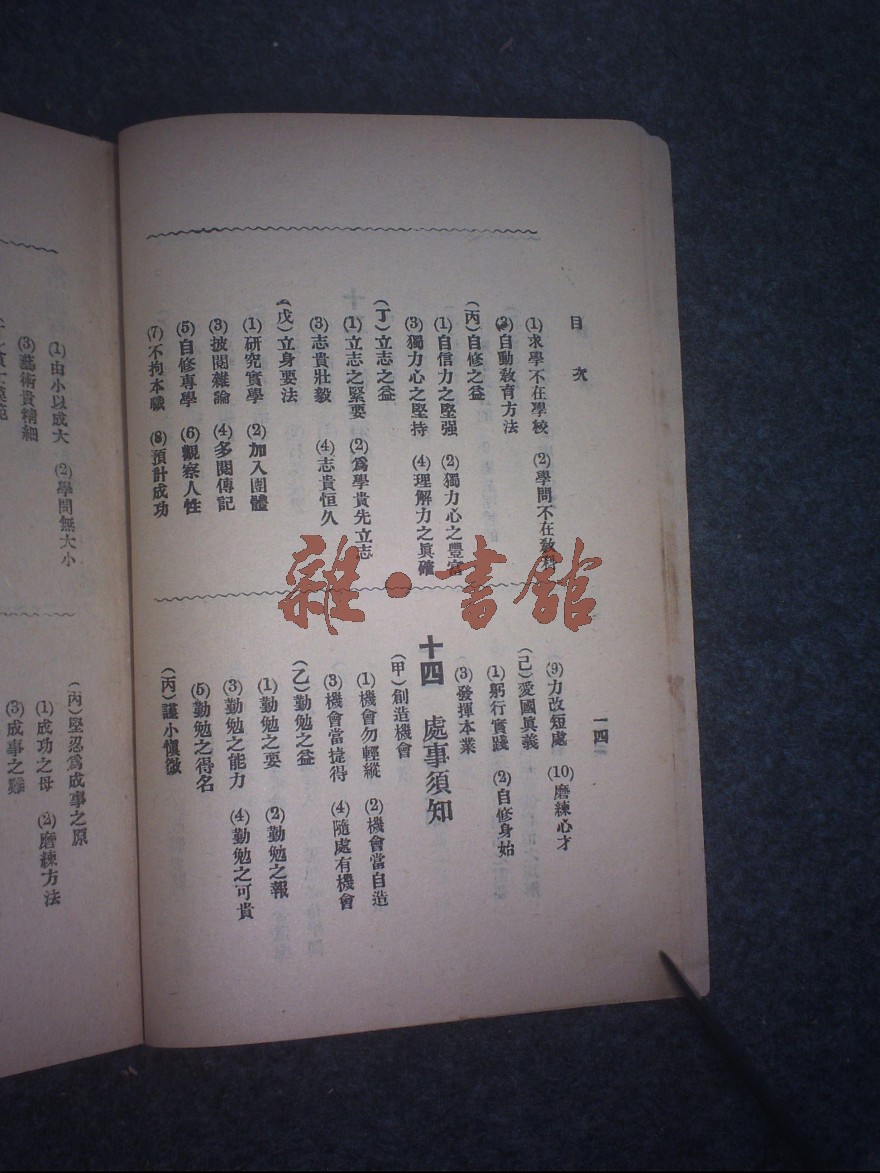 目次
一四
(1)求學不在學校 (2)學問不在教科
(3)自動教育方法
(丙)自修之益
(1)自信力之堅强 (2)獨力心之豐富
(3)獨力心之堅持 (4)理解力之眞確
(丁)立志之益
(1)立志之緊要 (2)爲學貴先立志
(3)志貴壯毅 (4)志貴恒久
(戊)立身要法
(1)研究實學 (2)加入團體
(3)披閱雜論 (4)多閱傳記
(5)自修專學 (6)觀察人性
(7)不拘本職 (8)預計成功
(9)力改短處 (10)磨練心才
(己)愛國眞義
(1)躬行實踐 (2)自修身始
(3)發揮本業
十四 處事須知
(甲)創造機會
(1)機會勿輕縱 (2)機會當自造
(3)機會當捷得 (4)隨處有機會
(乙)勤勉之益
(1)勤勉之要 (2)勤勉之報
(3)勤勉之能力 (4)勤勉之可貴
(5)勤勉之得名
(丙)謹小愼微
(1)由小以成大 (2)學問無大小
(3)藝術貴精細
(丙)堅忍爲成事之原
(1)成功之母 (2)磨練方法
(3)成事之難
雜·書館